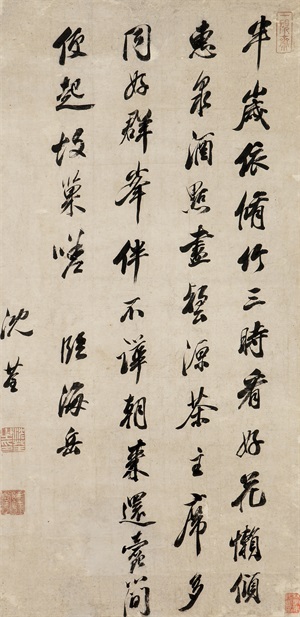 半歲依脩竹三時看好花懶傾
惠泉酒點盡壑源茶主席多
同好群峯伴不譁朝來還蠹簡
便起故巢嗟 臨海岳
沈荃